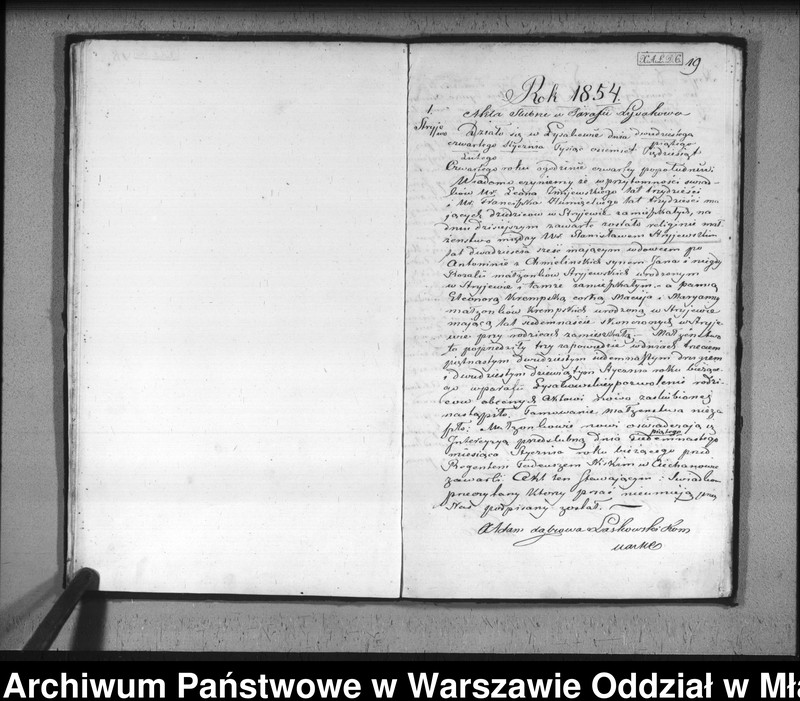 X.A.L.D.C. 19
Rok 1854.
1. Akta Slubne w Parafii Łysakowo
Stryjewo
Działo się w Łysakowie dnia dwudziestego
czwartego Stycznia piątego Tysiąc osiemset Pięćdziesiąt
Lutego
Czwartego roku o godzinie czwarty popołudniu
Wiadomo czyniemy że w przytomności świad-
ków Ur. Leona lat trzydzieści
i Ur. Franciszka lat trzydzieści ma-
jących dziedziców w Stryjewie zamieszkałych, na
dniu dzisiejszym zawarte zostało religijne mał-
żeństwo między Ur. Stanisławem Stryjewskim
lat dwadzieścia sześć mającym wdowcem po
Antoninie z Chmielinskich synem Jana i niegdy
Rozalii małżonków Stryjewskich urodzonym
w Stryjewie i tamże zamieszkałym – a panną
Eleonorą Krempską córką Macieja i Maryanny
małżonków Krempskich urodzoną w Stryjewie
mającą lat siedemnaście skończonych w Stryje-
wie przy rodzicach zamieszkałą – Małżeństwo
to poprzedziły trzy zapowiedzie w dniach trzecim
piętnastym dwudziestym
i dwudziestym dziewiątym Stycznia roku bieżące-
go w parafii Łysakowskiey pozwolenie rodzi-
ców obecnych Aktowi zaślubionej
nastąpiło. Tamowanie małżeństwa nieza-
szło. Małżonkowie nowi oswiadczają iż
Intercyzą przedslubną dnia siedemnastego piątego
miesiąca Stycznia roku bieżącego przed
Regentem Tadeuszem w Ciechanowie
zawarli. Akt ten stawającym i świadkom
przeczytany którzy pisać nieumieją przez
Nas podpisany został. –
X Adam Dąbrowa Laskowski Kom